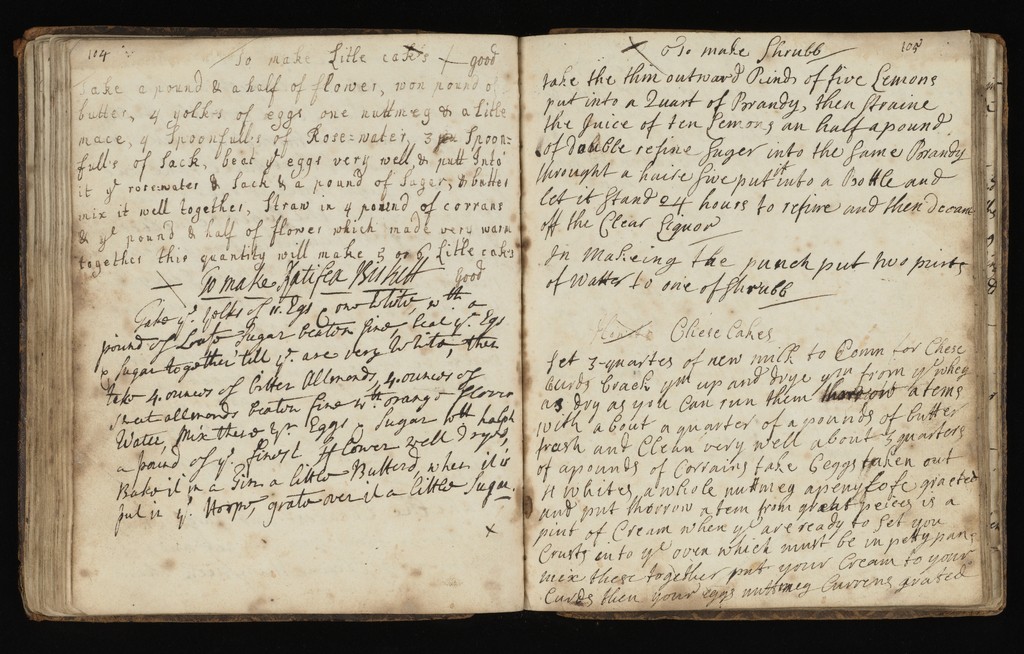 104
To make Litle cakes good
Take a pound & a half of flower, won pound of
butter, 4 yolks of eggs one nuttmeg & a litle
mace, 4 Spoonfulls of Rose=water, 3 Spoon-
fulls of Sack, beat yͤ eggs very well & putt into
it yͤ rosewater & Sack & a pound of Suger, & butter
mix it well together, Straw in 4 pound of corrans
& yͤ pound & half of flower which made very warm
together this quantity will make 5 or 6 Litle cakes
To make Ratifea Biskett good
Take yͤ yolks of Egs, one white, wth a
pound of Loafe Sugar beaton fine, beat yͤ Egs
& Sugar together till yͤ are very White, then
take 4 ounces of bitter Allmonds, 4 ounces of
sweet allmonds beaton fine wth orange flower
Water, Mix these Eggs & Sugar wth halfe
a pound of yͤ finest fflower well Dryed,
Bake it in a Tin a little Butterd, when it is
put in yͤ Hoops, grate over it a little Sugar
105
To make Shrubb
take the thin outward Rinds of five Lemons
put into a Quart of Brandy, then Straine
the Juice of ten Lemons an half a pound
of double refine Suger into the Same Brandy
throught a haire Sive put it into a Bottle and
let it Stand 24 hours to refine and then decant
off the Clear Liquor
In Makeing the punch put two parts
of Watter to one of Shrubb
Chese Cakes
Set 3-quartes of new milk to Comn for Chese
Curds brack ym up and drye ym from yͤ whey
as dry as you can run them atems
with about a quarter of a pounds of butter
fresh and Clean very well about 3 quarters
of a pounds of Corrains take 6 eggs taken out
4 whites a whole nuttmeg a peny lofe graeted
and put thorrow a tem from great peices is a
pint of Cream when yͤ are ready to Set you
Crusts into yͤ oven which must be in petty pans
mix these together put your Cream to your
Curds then your eggs nuttmeg Currens grated